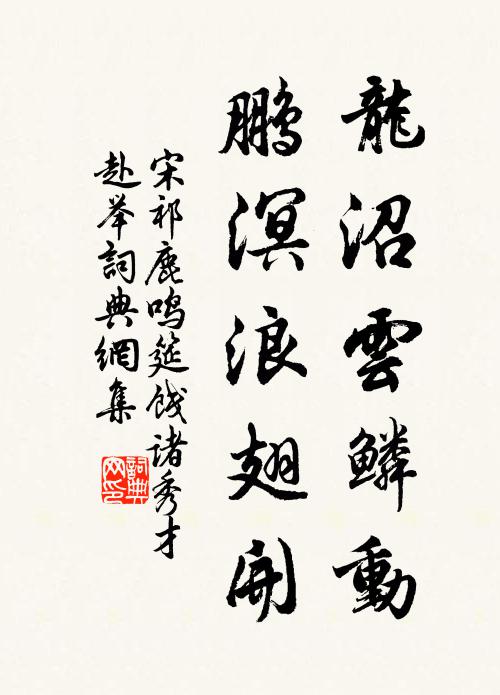 龍沼雲鱗動
鵬溟浪翅開
宋祁鹿鳴筵餞诸秀才
赴举詞典網集
詞典
网印